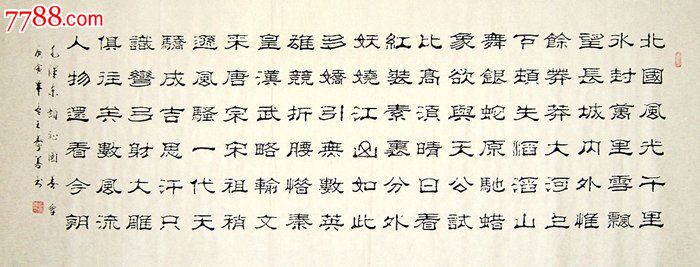 7788.com
北國風光千里
冰封萬里雪飄
望長城內外惟
餘莽莽大河上
下頓失滔滔山
舞銀蛇原馳蠟
象欲與天公試
比高須晴日看
紅裝素裹分外
妖嬈江山如此
多嬌引無數英
雄競折腰惜秦
皇漢武略輸文
采唐宗宋祖稍
遜風騷一代天
驕成吉思汗只
識彎弓射大雕
俱往矣數風流
人物還看今朝
毛澤東詞沁園春雪
寅年 書